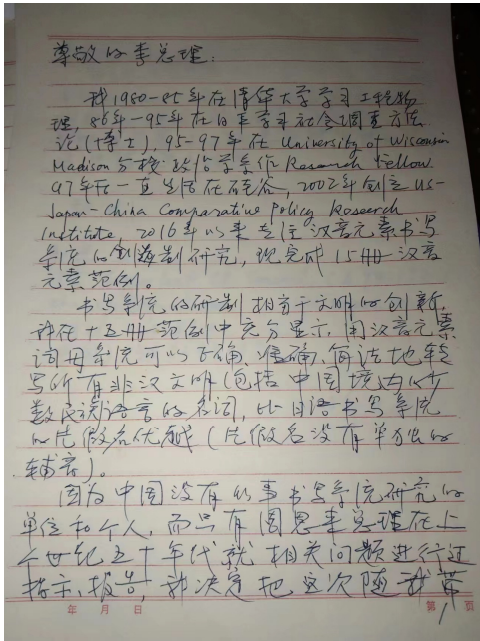 尊敬的李总理：
我1980-85年在清华大学学习工程物
理，86年-95年在日本学习社会调查方法
论（博士），95-97年在 University of Wisconsin
Madison 分校政治学系作 Research Fellow.
97年后一直生活在硅谷，2002年创立 US-
Japan-China Comparative Policy Research
Institute，2016年以来专注汉音元素书写
系统的研究，现完成15册汉音
元素范例。
书写系统的研制相当于文明的创新，
我在十五册范例中充分显示，用汉音元素
字母系统可以正确、准确、简洁地转
写所有非汉文明（包括中国境内的少
数民族语言的名词，比日语书写系统
的片假名优越（片假名没有单独的
辅音）。
因为中国没有从事书写系统研究的
单位和个人，而只有周恩来总理在上
个世纪五十年代就相关问题进行过
指示、报告，我决定把这次随我带
年 月 日 第 页